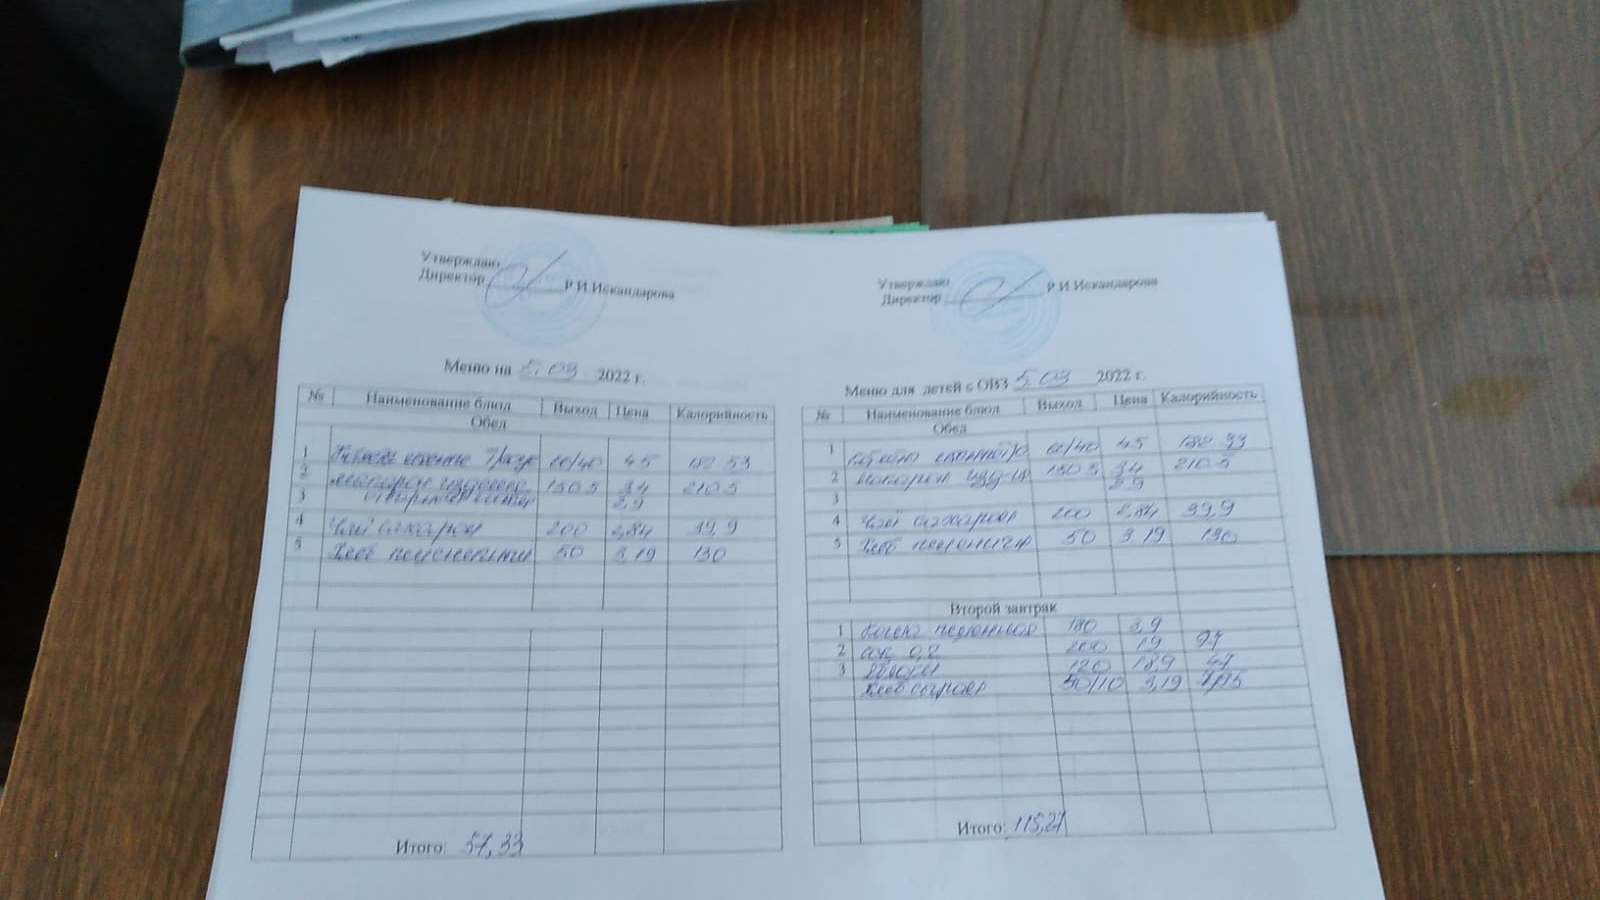 Утверждаю
Директор Р И Искандарова
Меню на 5.03 2022 г.
№ Наименование блюд Выход Цена Калорийность
Обед
1 60/40 45 182 53
2 макарон 150 5 34 210 5
3 2,9
4 Чай сахаром 200 2,84 39,9
5 Хлеб 50 3 19 130
Итого: 57,33
Утверждаю
Директор Р И Искандарова
Меню для детей с ОВЗ 5 03 2022 г.
№ Наименование блюд Выход Цена Калорийность
Обед
1 60/40 45 182 33
2 макарон 150 5 34 210 5
3 2 9
4 Чай сахаром 200 2,84 39,9
5 Хлеб 50 3 19 130
Второй завтрак
1 Каша 180 3,9
2 сок 0,2 200 19 94
3 120 18,9 47
Хлеб сыром 50/10 3,19
Итого: 115,27